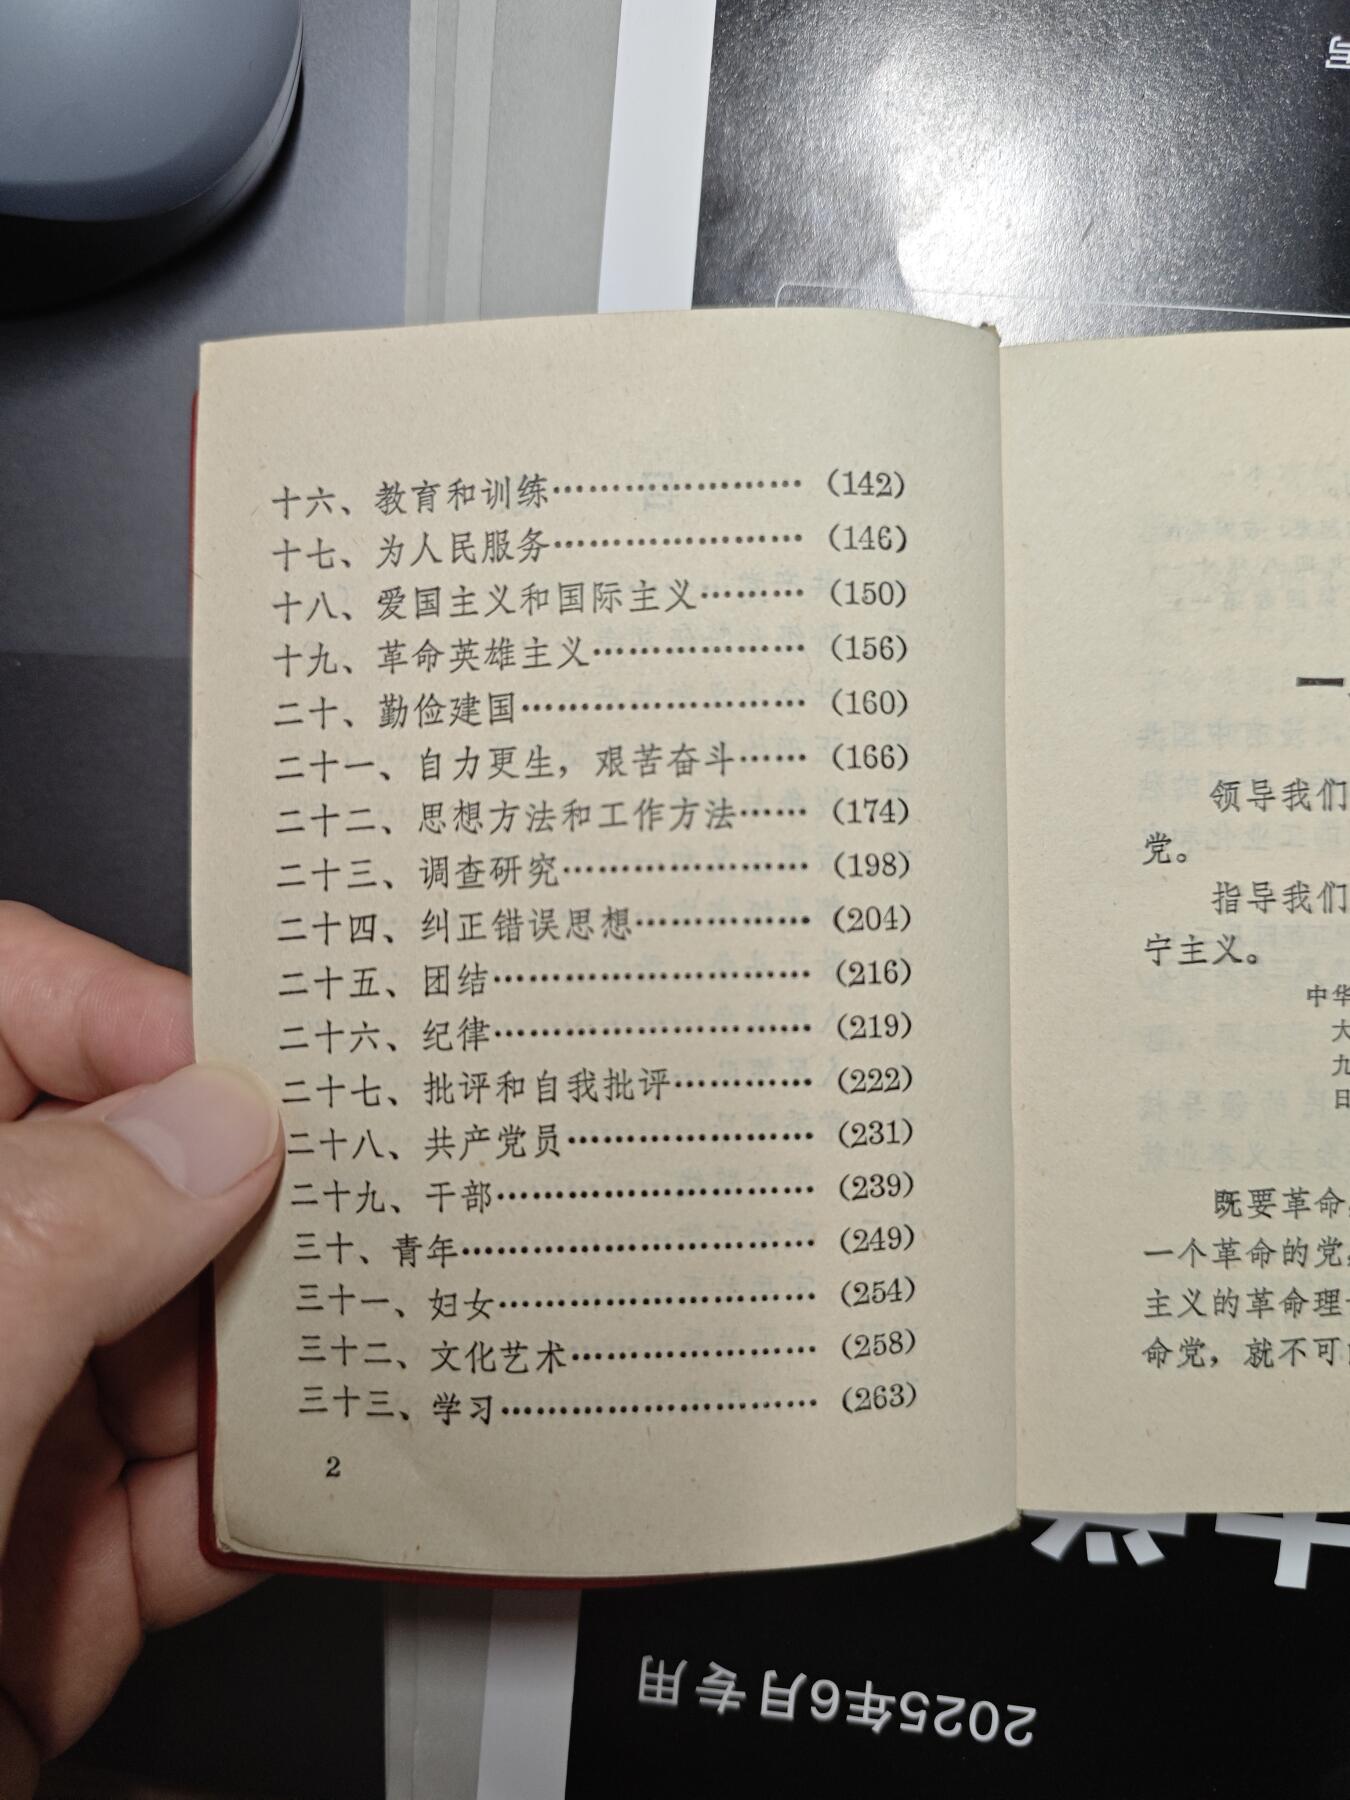 十六、教育和训练…………………(142)
十七、为人民服务…………………(146)
十八、爱国主义和国际主义………(150)
十九、革命英雄主义………………(156)
二十、勤俭建国……………………(160)
二十一、自力更生，艰苦奋斗……(166)
二十二、思想方法和工作方法……(174)
二十三、调查研究…………………(198)
二十四、纠正错误思想……………(204)
二十五、团结………………………(216)
二十六、纪律………………………(219)
二十七、批评和自我批评…………(222)
二十八、共产党员…………………(231)
二十九、干部………………………(239)
三十、青年…………………………(249)
三十一、妇女………………………(254)
三十二、文化艺术…………………(258)
三十三、学习………………………(263)
2
一
领导我们
党。
指导我们
宁主义。
中华
大
九
日
既要革命，
一个革命的党，
主义的革命理
命党，就不可
2025年6月专用